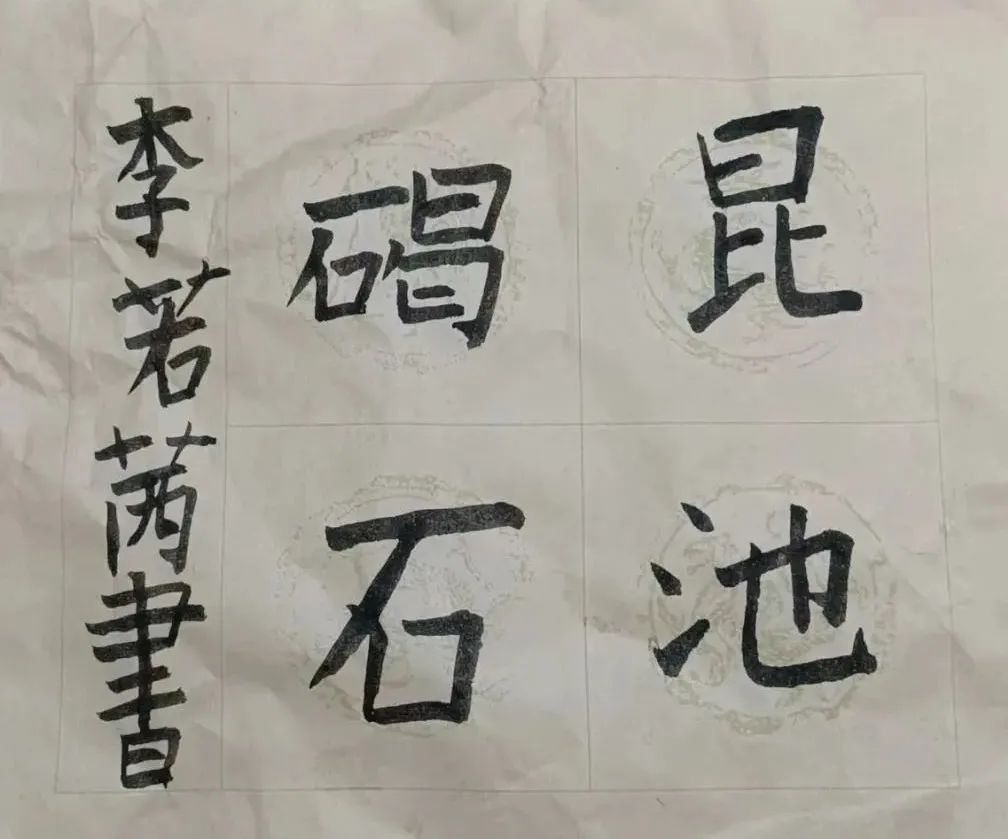 昆池
碣石
李若苪書